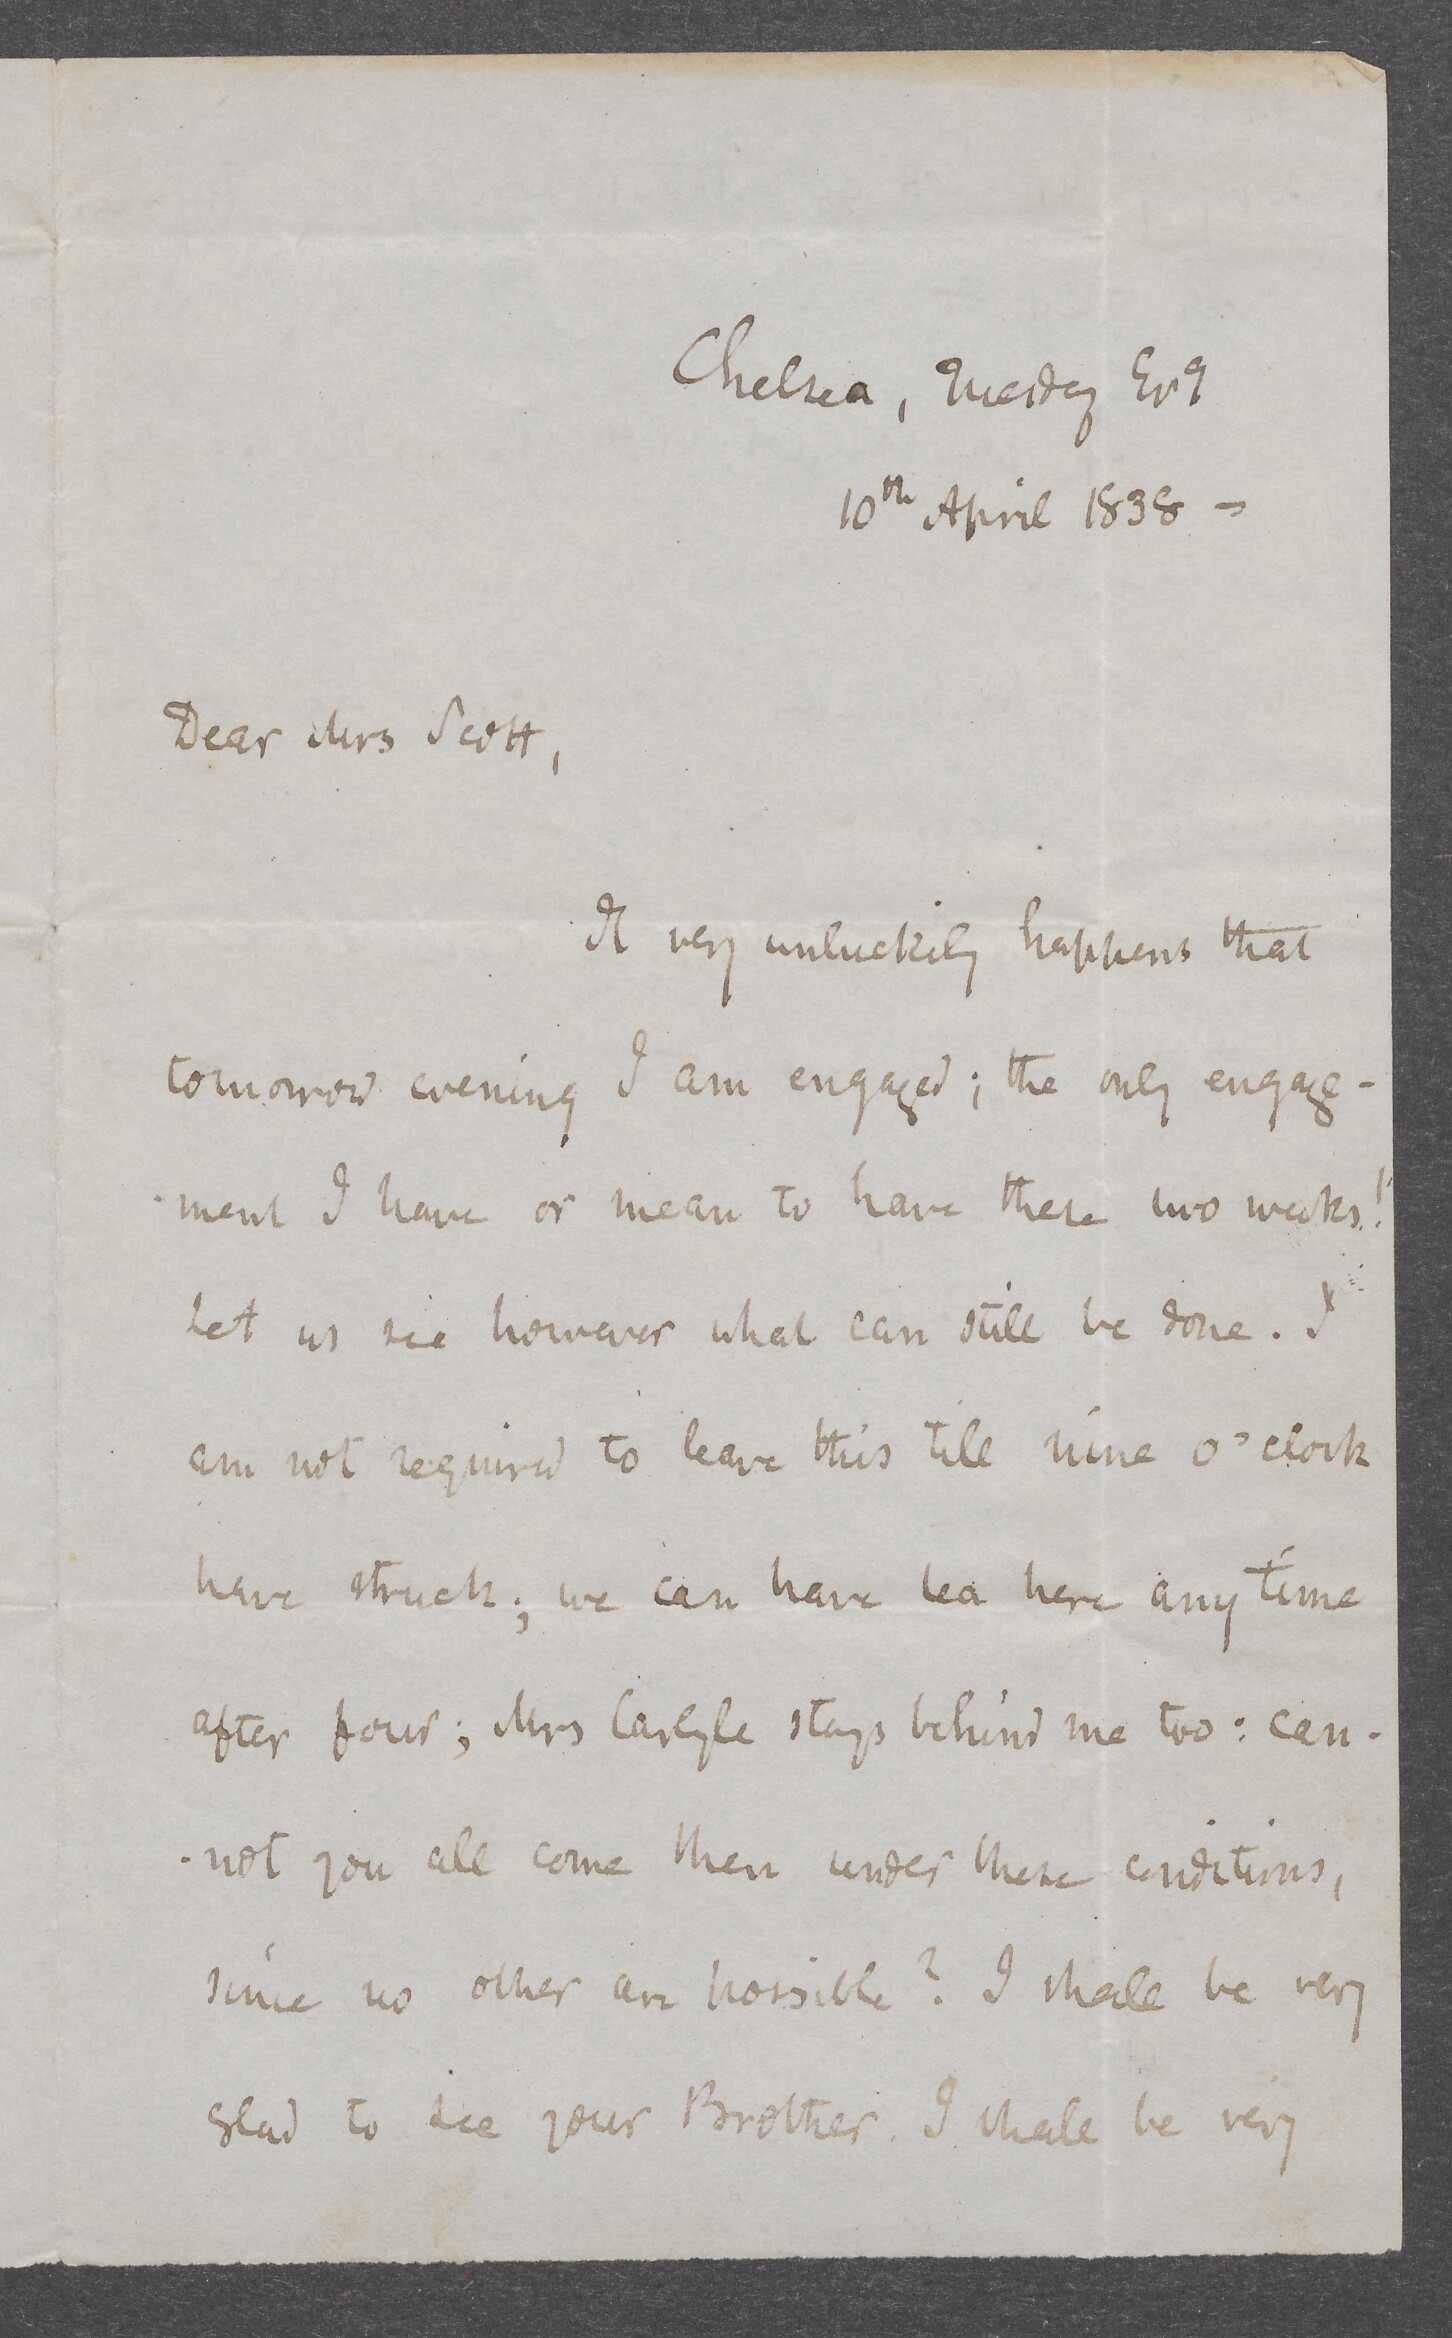 Chelsea, Tuesday Evg
10th April 1838 -
Dear Mrs Scott,
It very unluckily happens that
tomorrow evening I am engaged; the only engage-
-ment I have or mean to have these two weeks!
Let us see however what can still be done. I
am not required to leave this till nine o'clock
have struck; we can have tea here any time
after four; Mrs Carlyle stays behind me too: can-
-not you all come then under these conditions,
since no other are possible? I shall be very
glad to see your Brother. I shall be very